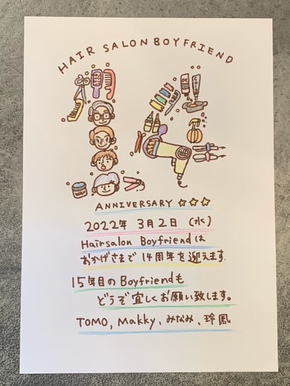 HAIR SALON BOYFRIEND
14
ANNIVERSARY ☆☆☆
2022年 3月2日 (水)
Hairsalon Boyfriendは
おかげさまで 14周年を迎えます.
15年目のBoyfriendも
どうぞ宜しくお願い致します。
TOMO, Makky, みなみ、玲凰